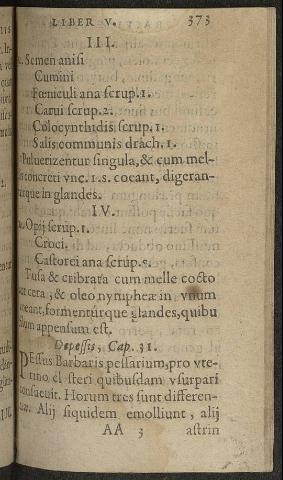 LIBER V. 373
III.
. Semen anisi
Cumini
Fœniculi ana scrup. 1.
Carui scrup. 2.
Colocynthidis scrup. 1.
Salis communis drach. 1.
Puluerizentur singula, & cum mel-
concreti vnc. 1. s. cocant, digeran-
turque in glandes.
IV.
. Opij scrup. 1.
Croci.
Castorei ana scrup. s.
Tusa & cribrata cum melle cocto
cera, & oleo nympheæ in vnum
eant, formenturque glandes, quibu
appensum est.
De pessis, Cap. 31.
PEssus Barbaris pessarium, pro vte-
rino et steri quibusdam vsurpari
consueuit. Horum tres sunt differen-
Alij siquidem emolliunt, alij
AA 3 astrin